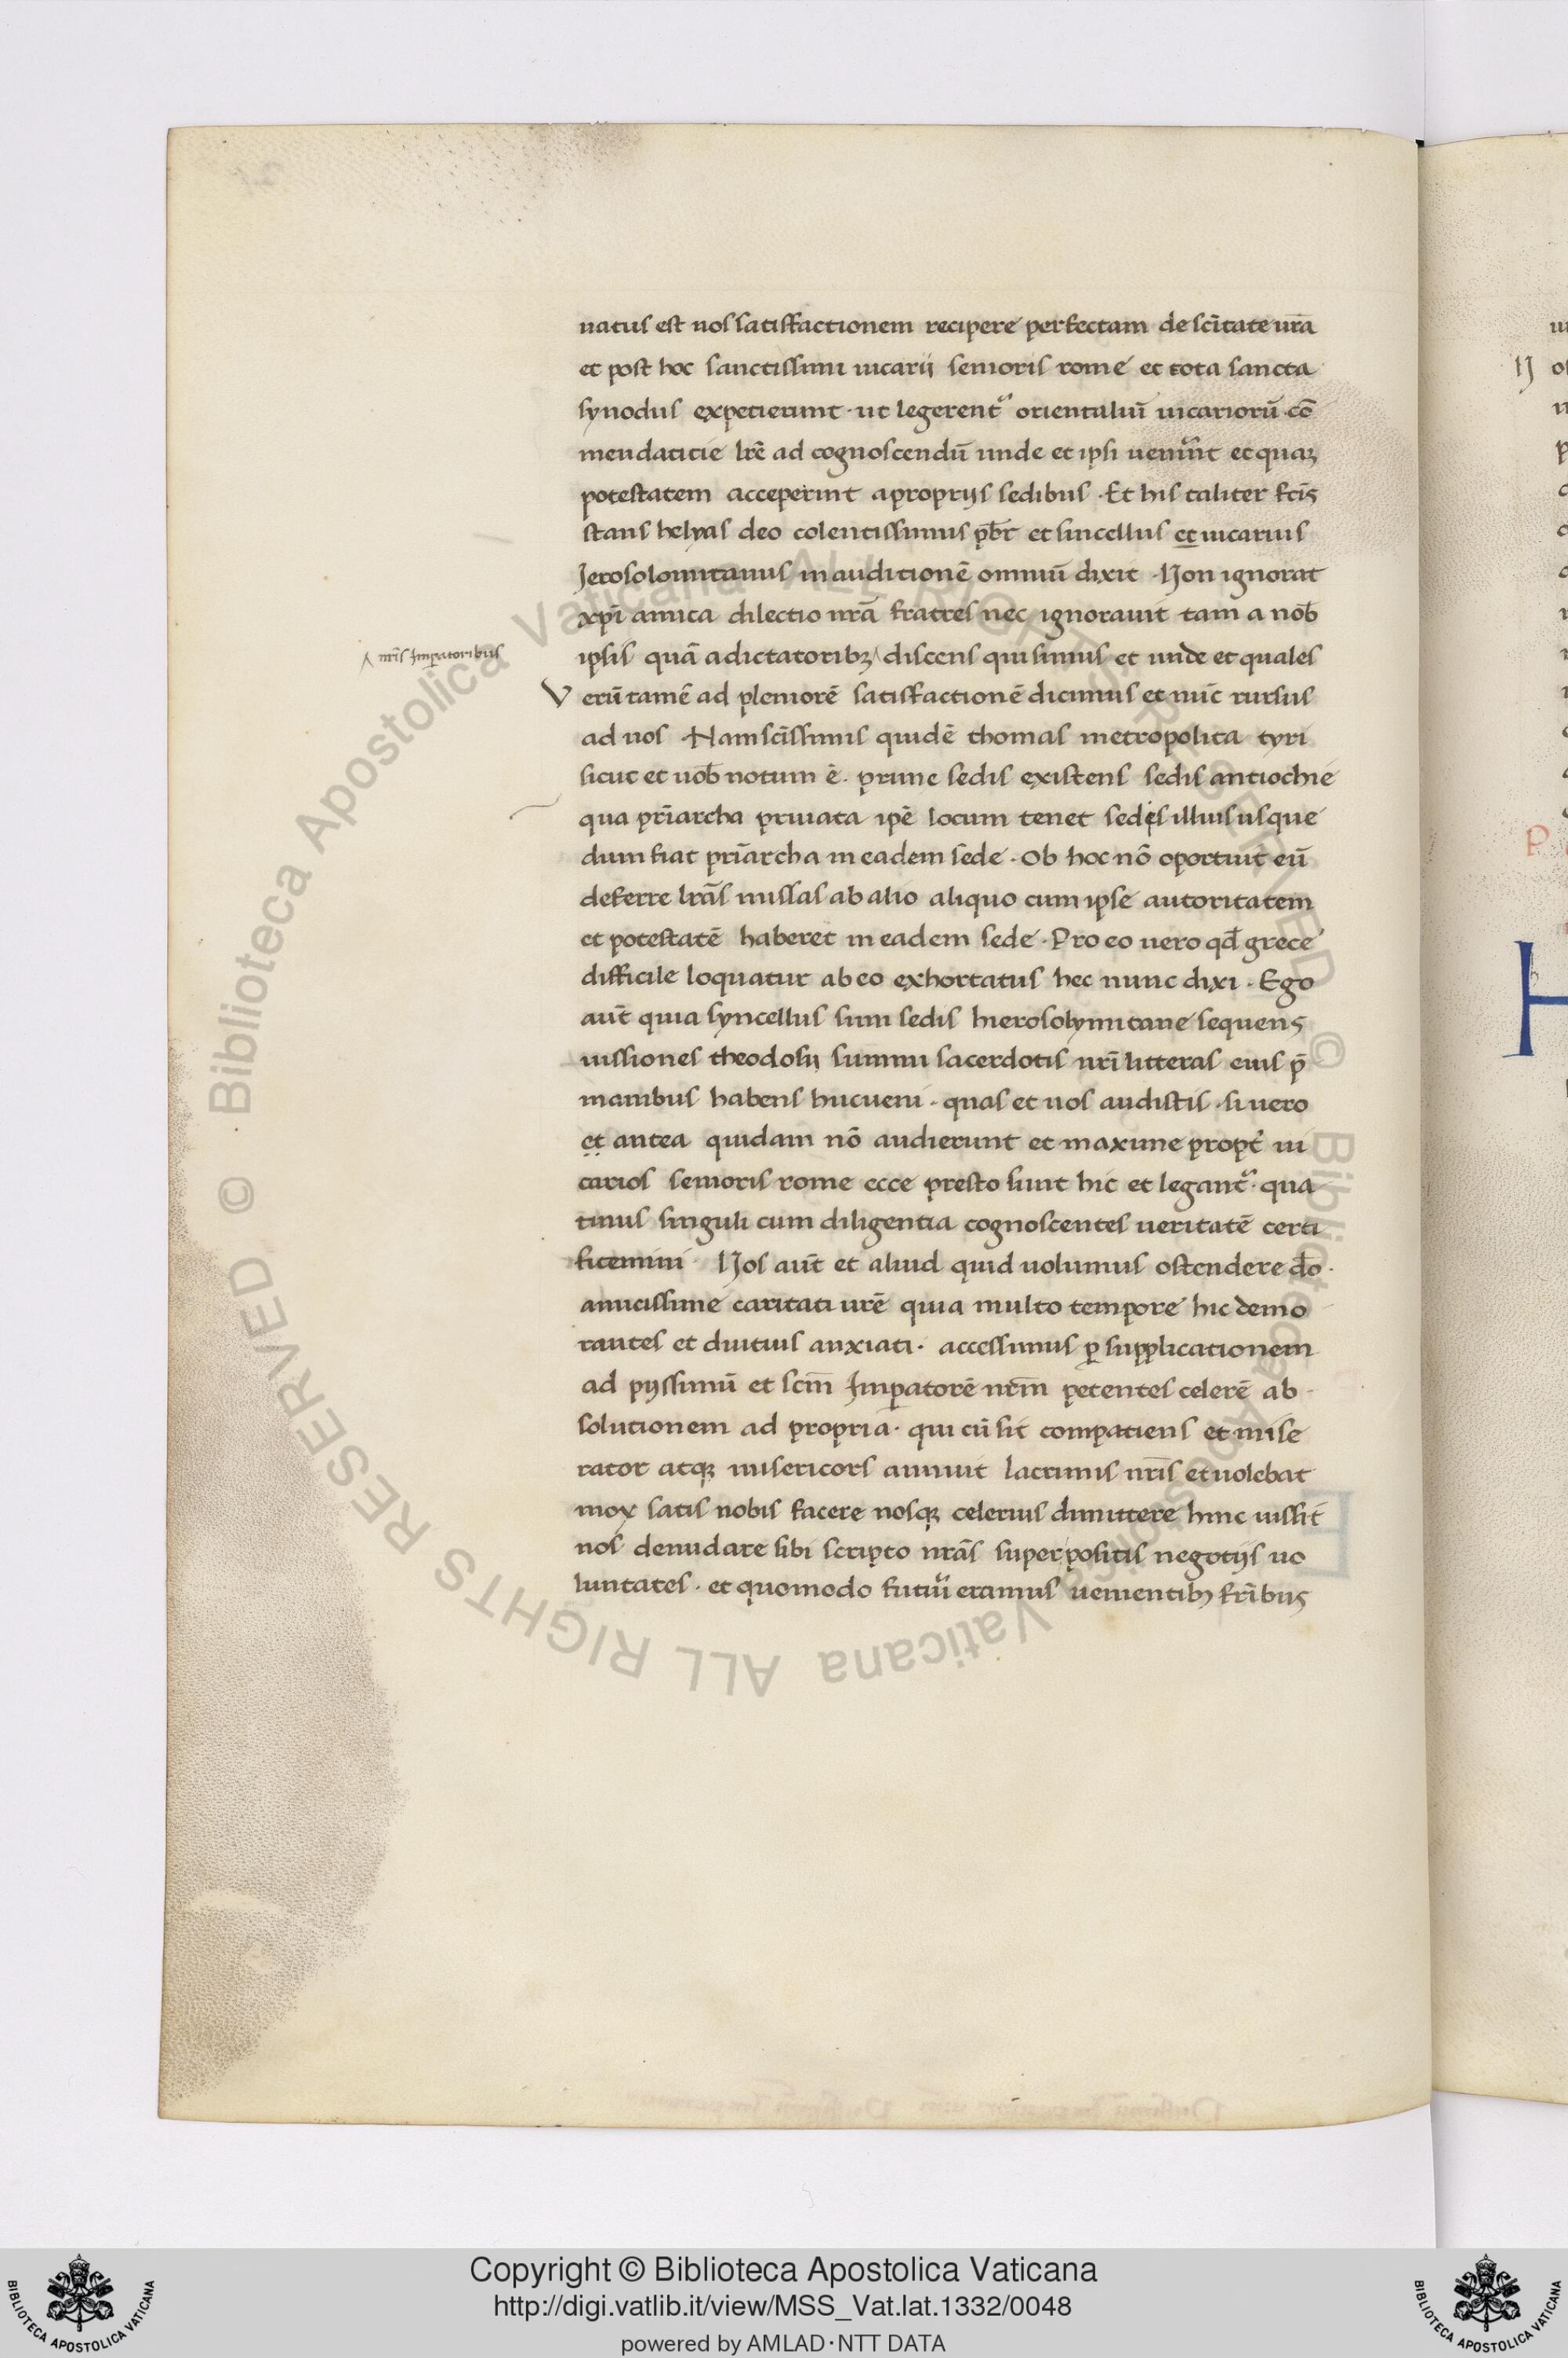 natus est nos satisfactionem recipere perfectam de scītate urā
et post hoc sanctissimi uicarii senioris rome et tota sancta
synodus expetierunt · ut legerent᷑ orientaliū uicariorū cō
mendaticie lrē ad cognoscendū unde et ipsi uener̄nt et quaꝫ
potestatem acceperint a proprijs sedibus · Et his taliter fctīs
stans helyas deo colentissimus pb̄r et sincellus et uicarius
Jerosolomitanus in auditionē omniū dixit · Non ignorat
xpī amica dilectio urā fratres nec ignorauit tam a nob̄
nrīs Imꝑatoribus
ipsis quā a dictatoribꝫ discens qui simus et unde et quales
Verū tamē ad pleniorē satisfactionē dicimus et nūc rursus
ad uos · Nam scīssimus quidē thomas metropolita tyri
sicut et uob̄ notum ē · prime sedis existens sedis antiochie
qua prīarcha priuata ipē locum tenet sedis illius usque
dum fiat prīarcha in eadem sede · Ob hoc nō oportuit eū
deferre lrās missas ab alio aliquo cum ipse autoritatem
et potestatē haberet in eadem sede · Pro eo uero qd̄ grece
difficile loquatur ab eo exhortatus hec nunc dixi · Ego
aut̄ quia syncellus sum sedis hierosolymitane sequens
iussiones theodosij summi sacerdotis nrī litteras eius p̄
manibus habens huc ueni · quas et uos audistis · si uero
et antea quidam nō audierunt et maxime propt̄ ui
carios senioris rome ecce presto sunt hic et legant᷑ · qua
tinus singuli cum diligentia cognoscentes ueritatē certi
ficemini · Nos aut̄ et aliud quid uolumus ostendere do̅ ·
amicissime caritati urē quia multo tempore hic demo
rantes et diutius anxiati · accessimus ꝑ supplicationem
ad pijssimū et scm̄ Imꝑatorē nrm̄ petentes celerē ab
solutionem ad propria · qui cū sit compatiens et mise
rator atqꝫ misericors annuit lacrimis nrīs et uolebat
mox satis nobis facere nosqꝫ celerius dimittere hinc iussit
nos denudare sibi scripto nrās superpositis negotijs uo
luntates · et quomodo futuī eramus uenientibꝫ frībus
Copyright © Biblioteca Apostolica Vaticana
http://digi.vatlib.it/view/MSS_Vat.lat.1332/0048
powered by AMLAD·NTT DATA